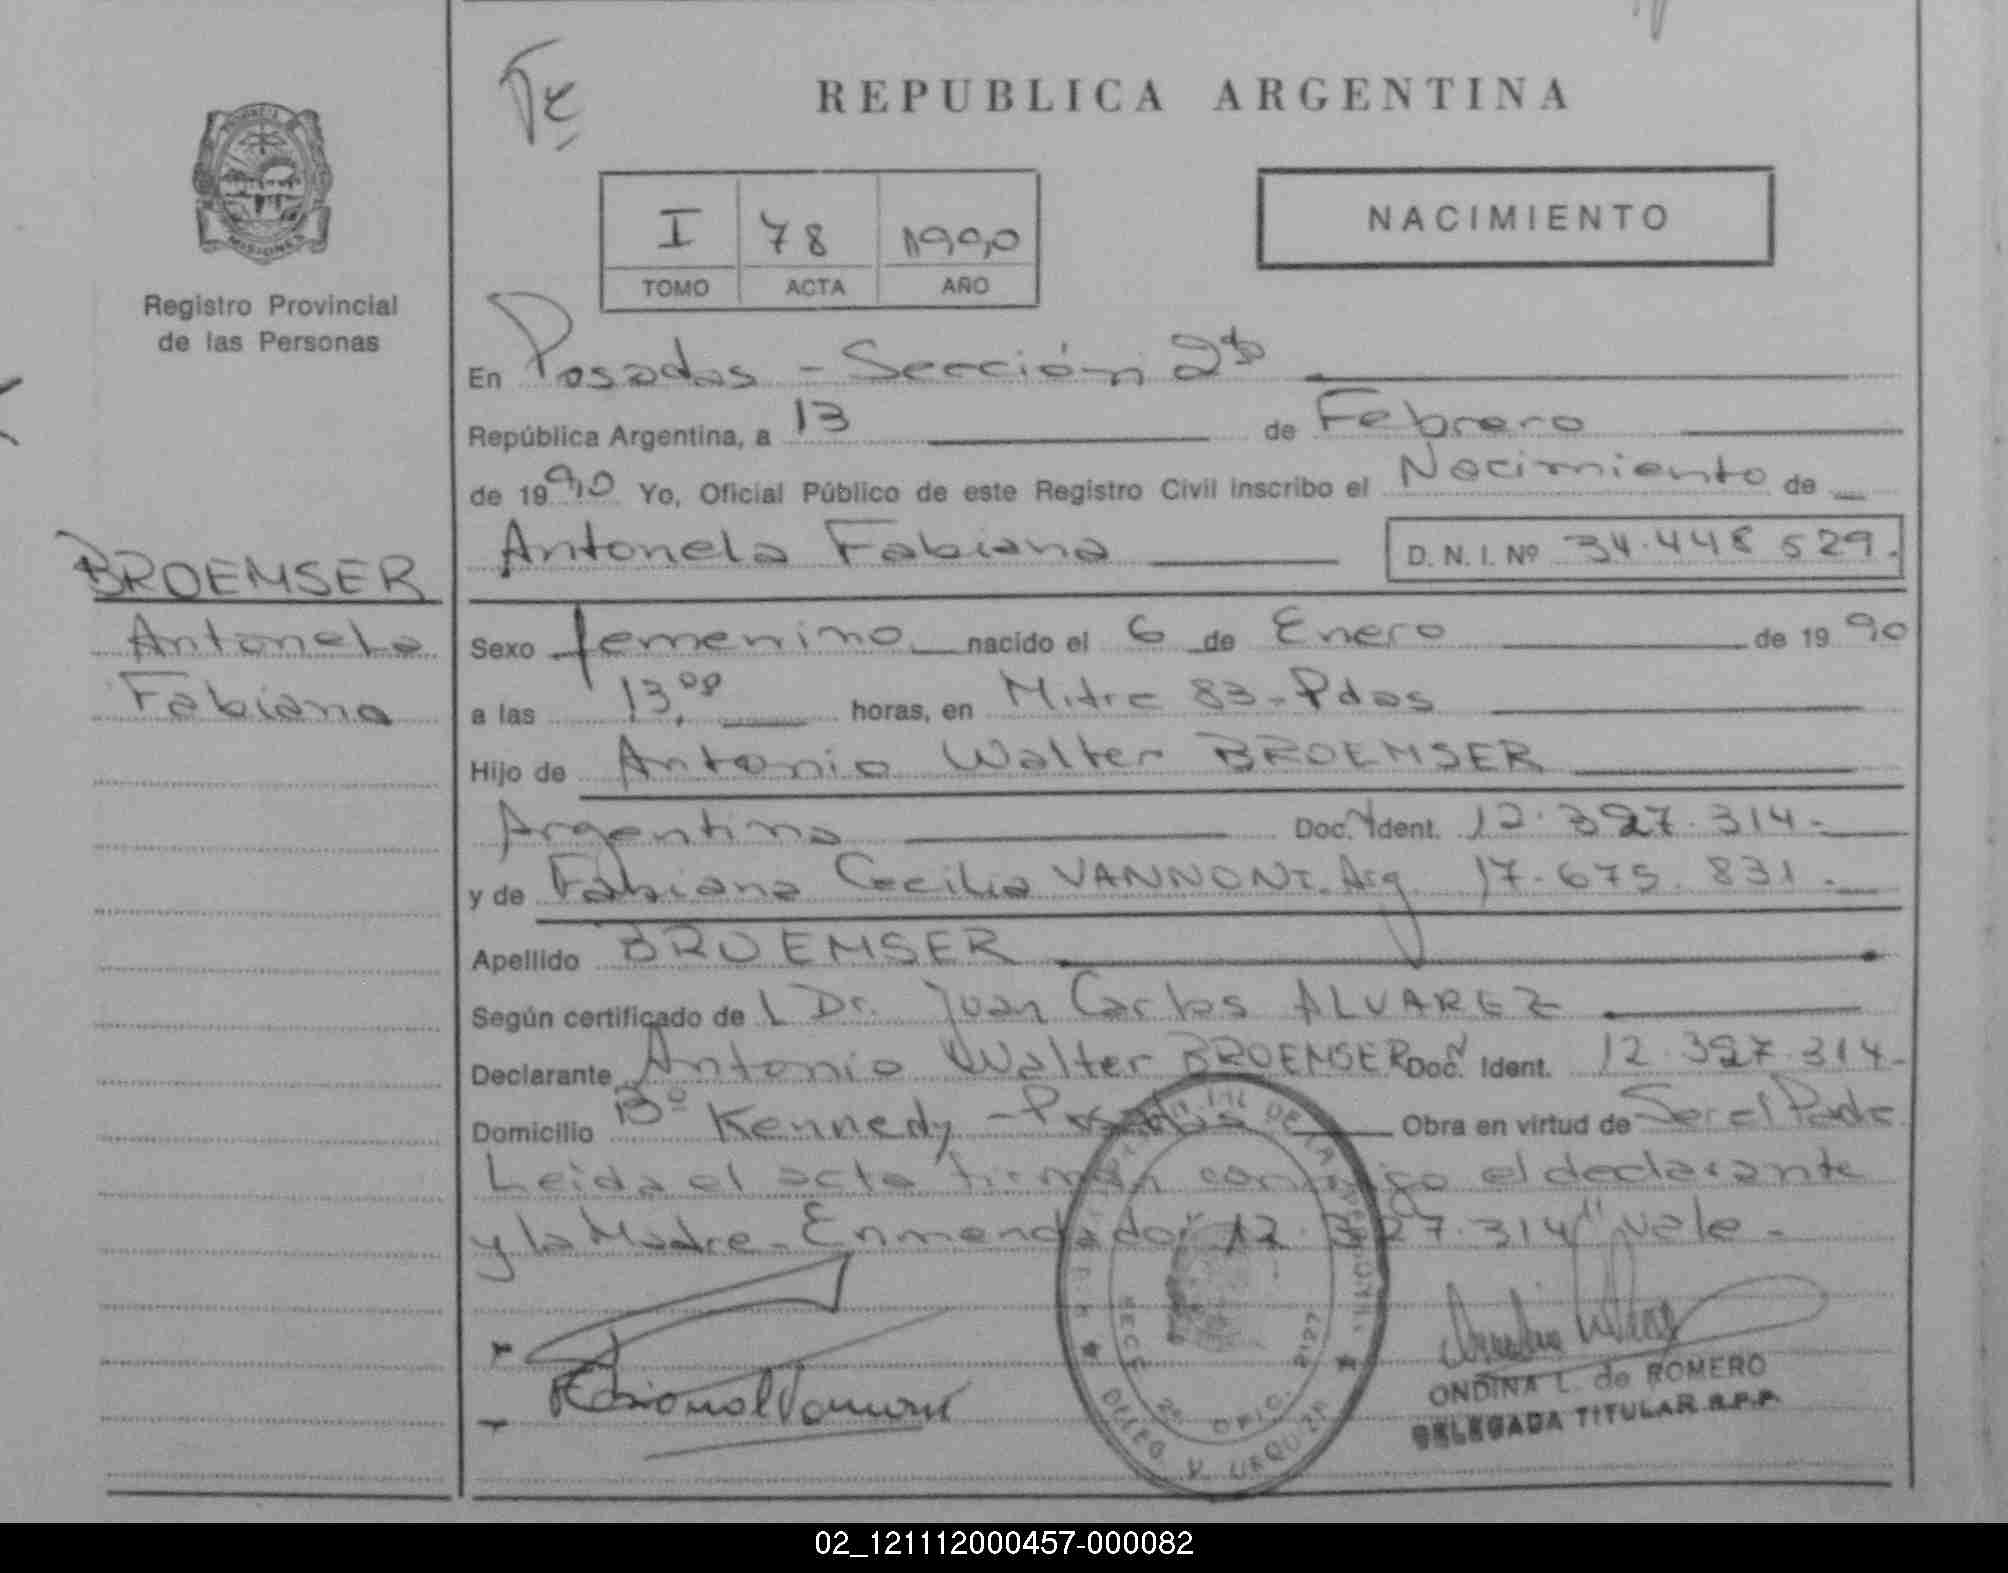 REPUBLICA ARGENTINA
I 78 1990
TOMO ACTA AÑO
NACIMIENTO
MISIONES
Registro Provincial
de las Personas
BROEMSER
Antonela
Fabiana
En Posadas - Sección 2da
República Argentina, a 13 de Febrero
de 1990 Yo, Oficial Público de este Registro Civil inscribo el Nacimiento de
Antonela Fabiana D. N. I. Nº 34.448 529.
Sexo femenino nacido el 6 de Enero de 1990
a las 13,00 horas, en Mitre 83 - Pdas
Hijo de Antonio Walter BROEMSER
Argentino Doc. Ident. 12.327.314.-
y de Fabiana Cecilia VANNONI. Arg 17.675.831.-
Apellido BROEMSER
Según certificado de L Dr. Juan Carlos ALVAREZ
Declarante Antonio Walter BROEMSER Doc. Ident. 12.327.314.-
Domicilio Bº Kennedy - Posadas Obra en virtud de Ser el Padre
Leida el acta firman conmigo el declarante
y la Madre. Enmendado "12.327.314" vale.-
ONDINA L. de ROMERO
DELEGADA TITULAR R.P.P.
02_121112000457-000082